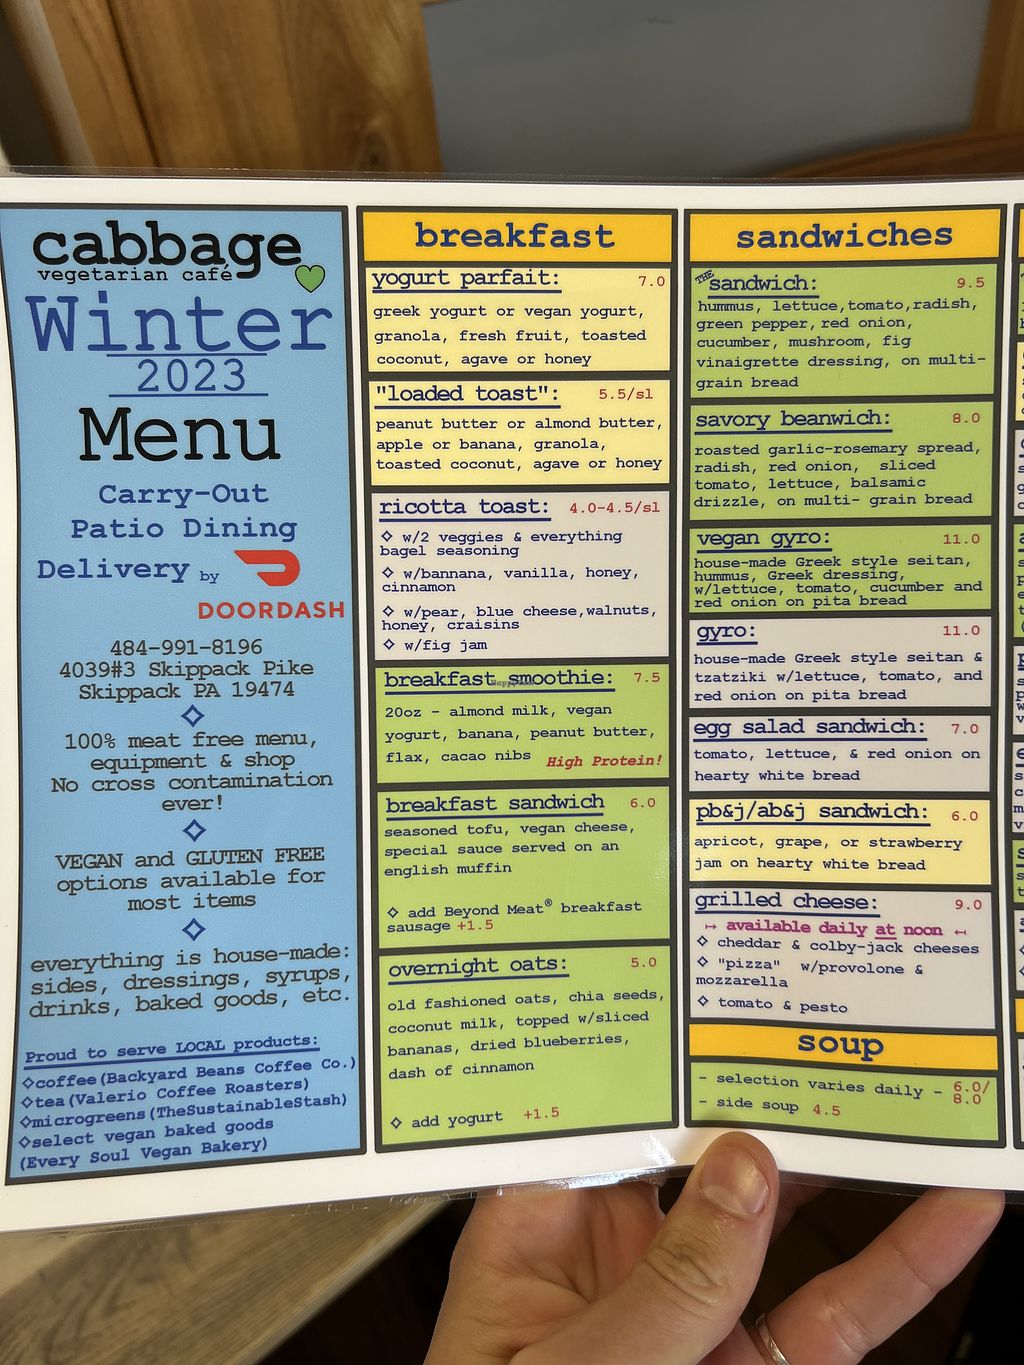 cabbage
vegetarian café
Winter
2023
Menu
Carry-Out
Patio Dining
Delivery by
DOORDASH
484-991-8196
4039#3 Skippack Pike
Skippack PA 19474
100% meat free menu,
equipment & shop
No cross contamination
ever!
VEGAN and GLUTEN FREE
options available for
most items
everything is house-made:
sides, dressings, syrups,
drinks, baked goods, etc.
Proud to serve LOCAL products:
◇coffee(Backyard Beans Coffee Co.)
◇tea(Valerio Coffee Roasters)
◇microgreens(TheSustainableStash)
◇select vegan baked goods
(Every Soul Vegan Bakery)
breakfast
yogurt parfait: 7.0
greek yogurt or vegan yogurt,
granola, fresh fruit, toasted
coconut, agave or honey
"loaded toast": 5.5/sl
peanut butter or almond butter,
apple or banana, granola,
toasted coconut, agave or honey
ricotta toast: 4.0-4.5/sl
◇ w/2 veggies & everything
bagel seasoning
◇ w/bannana, vanilla, honey,
cinnamon
◇ w/pear, blue cheese,walnuts,
honey, craisins
◇ w/fig jam
breakfast smoothie: 7.5
20oz - almond milk, vegan
yogurt, banana, peanut butter,
flax, cacao nibs High Protein!
breakfast sandwich 6.0
seasoned tofu, vegan cheese,
special sauce served on an
english muffin
◇ add Beyond Meat® breakfast
sausage +1.5
overnight oats: 5.0
old fashioned oats, chia seeds,
coconut milk, topped w/sliced
bananas, dried blueberries,
dash of cinnamon
◇ add yogurt +1.5
sandwiches
THE sandwich: 9.5
hummus, lettuce,tomato,radish,
green pepper, red onion,
cucumber, mushroom, fig
vinaigrette dressing, on multi-
grain bread
savory beanwich: 8.0
roasted garlic-rosemary spread,
radish, red onion, sliced
tomato, lettuce, balsamic
drizzle, on multi- grain bread
vegan gyro: 11.0
house-made Greek style seitan,
hummus, Greek dressing,
w/lettuce, tomato, cucumber and
red onion on pita bread
gyro: 11.0
house-made Greek style seitan &
tzatziki w/lettuce, tomato, and
red onion on pita bread
egg salad sandwich: 7.0
tomato, lettuce, & red onion on
hearty white bread
pb&j/ab&j sandwich: 6.0
apricot, grape, or strawberry
jam on hearty white bread
grilled cheese: 9.0
↦ available daily at noon ↤
◇ cheddar & colby-jack cheeses
◇ "pizza" w/provolone &
mozzarella
◇ tomato & pesto
soup
- selection varies daily - 6.0/
8.0
- side soup 4.5